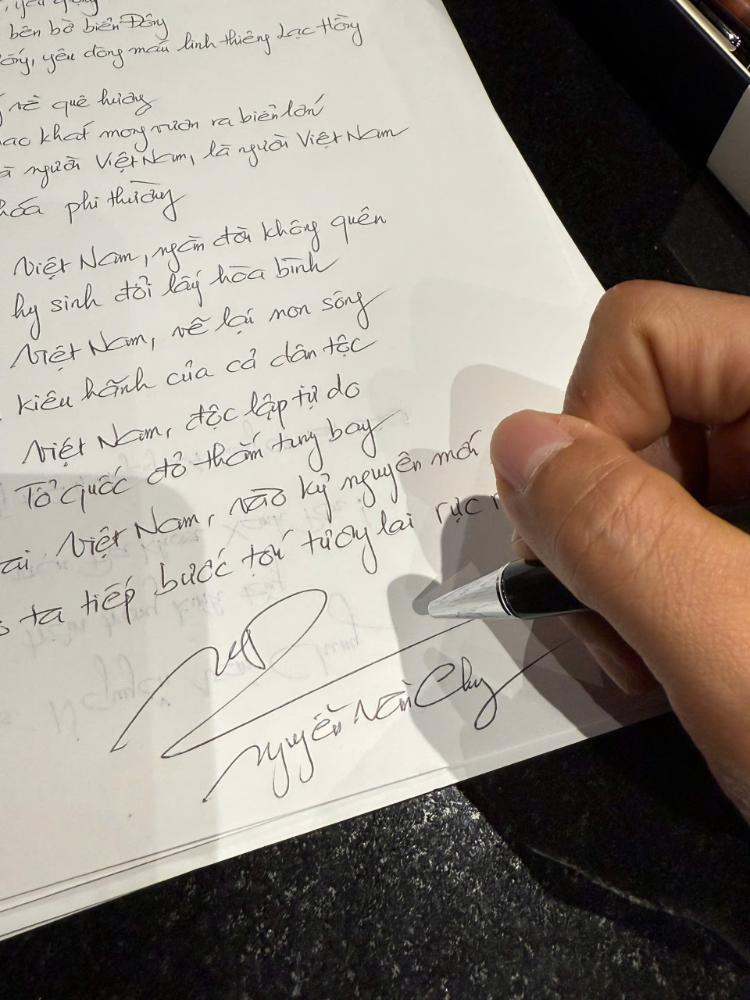 , yêu
bên bờ biển Đông
, yêu dòng máu linh thiêng Lạc Hồng
về quê hương
khát mong vươn ra biển lớn
người Việt Nam, là người Việt Nam
hóa phi thường
Việt Nam, ngàn đời không quên
hy sinh đổi lấy hòa bình
Việt Nam, vẽ lại non sông
kiêu hãnh của cả dân tộc
Việt Nam, độc lập tự do
Tổ Quốc đỏ thắm tung bay
Việt Nam, vào kỷ nguyên mới
ta tiếp bước tới tương lai rực
Nguyễn Văn Chung